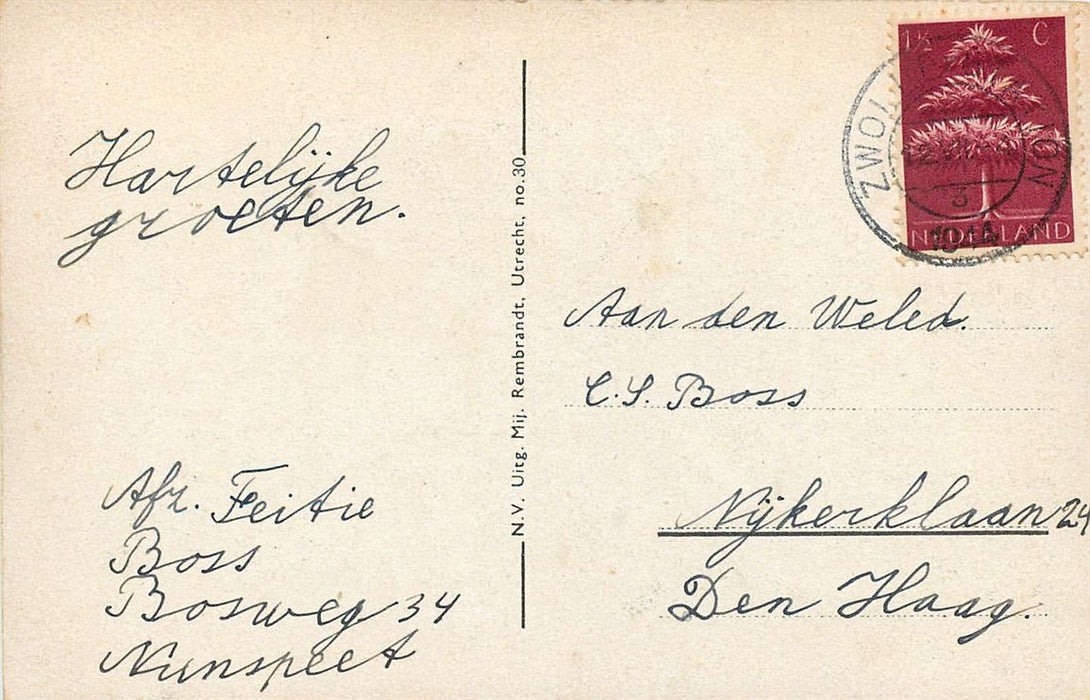 Hartelijke
groeten.
Afz. Feitie
Boss
Bosweg 34
Nunspeet
N.V. Uitg. Mij. Rembrandt, Utrecht, no. 30
1½ C
NEDERLAND
ZWOL
3
Aan den Weled.
C.S. Boss
Nijkerklaan 24
Den Haag.